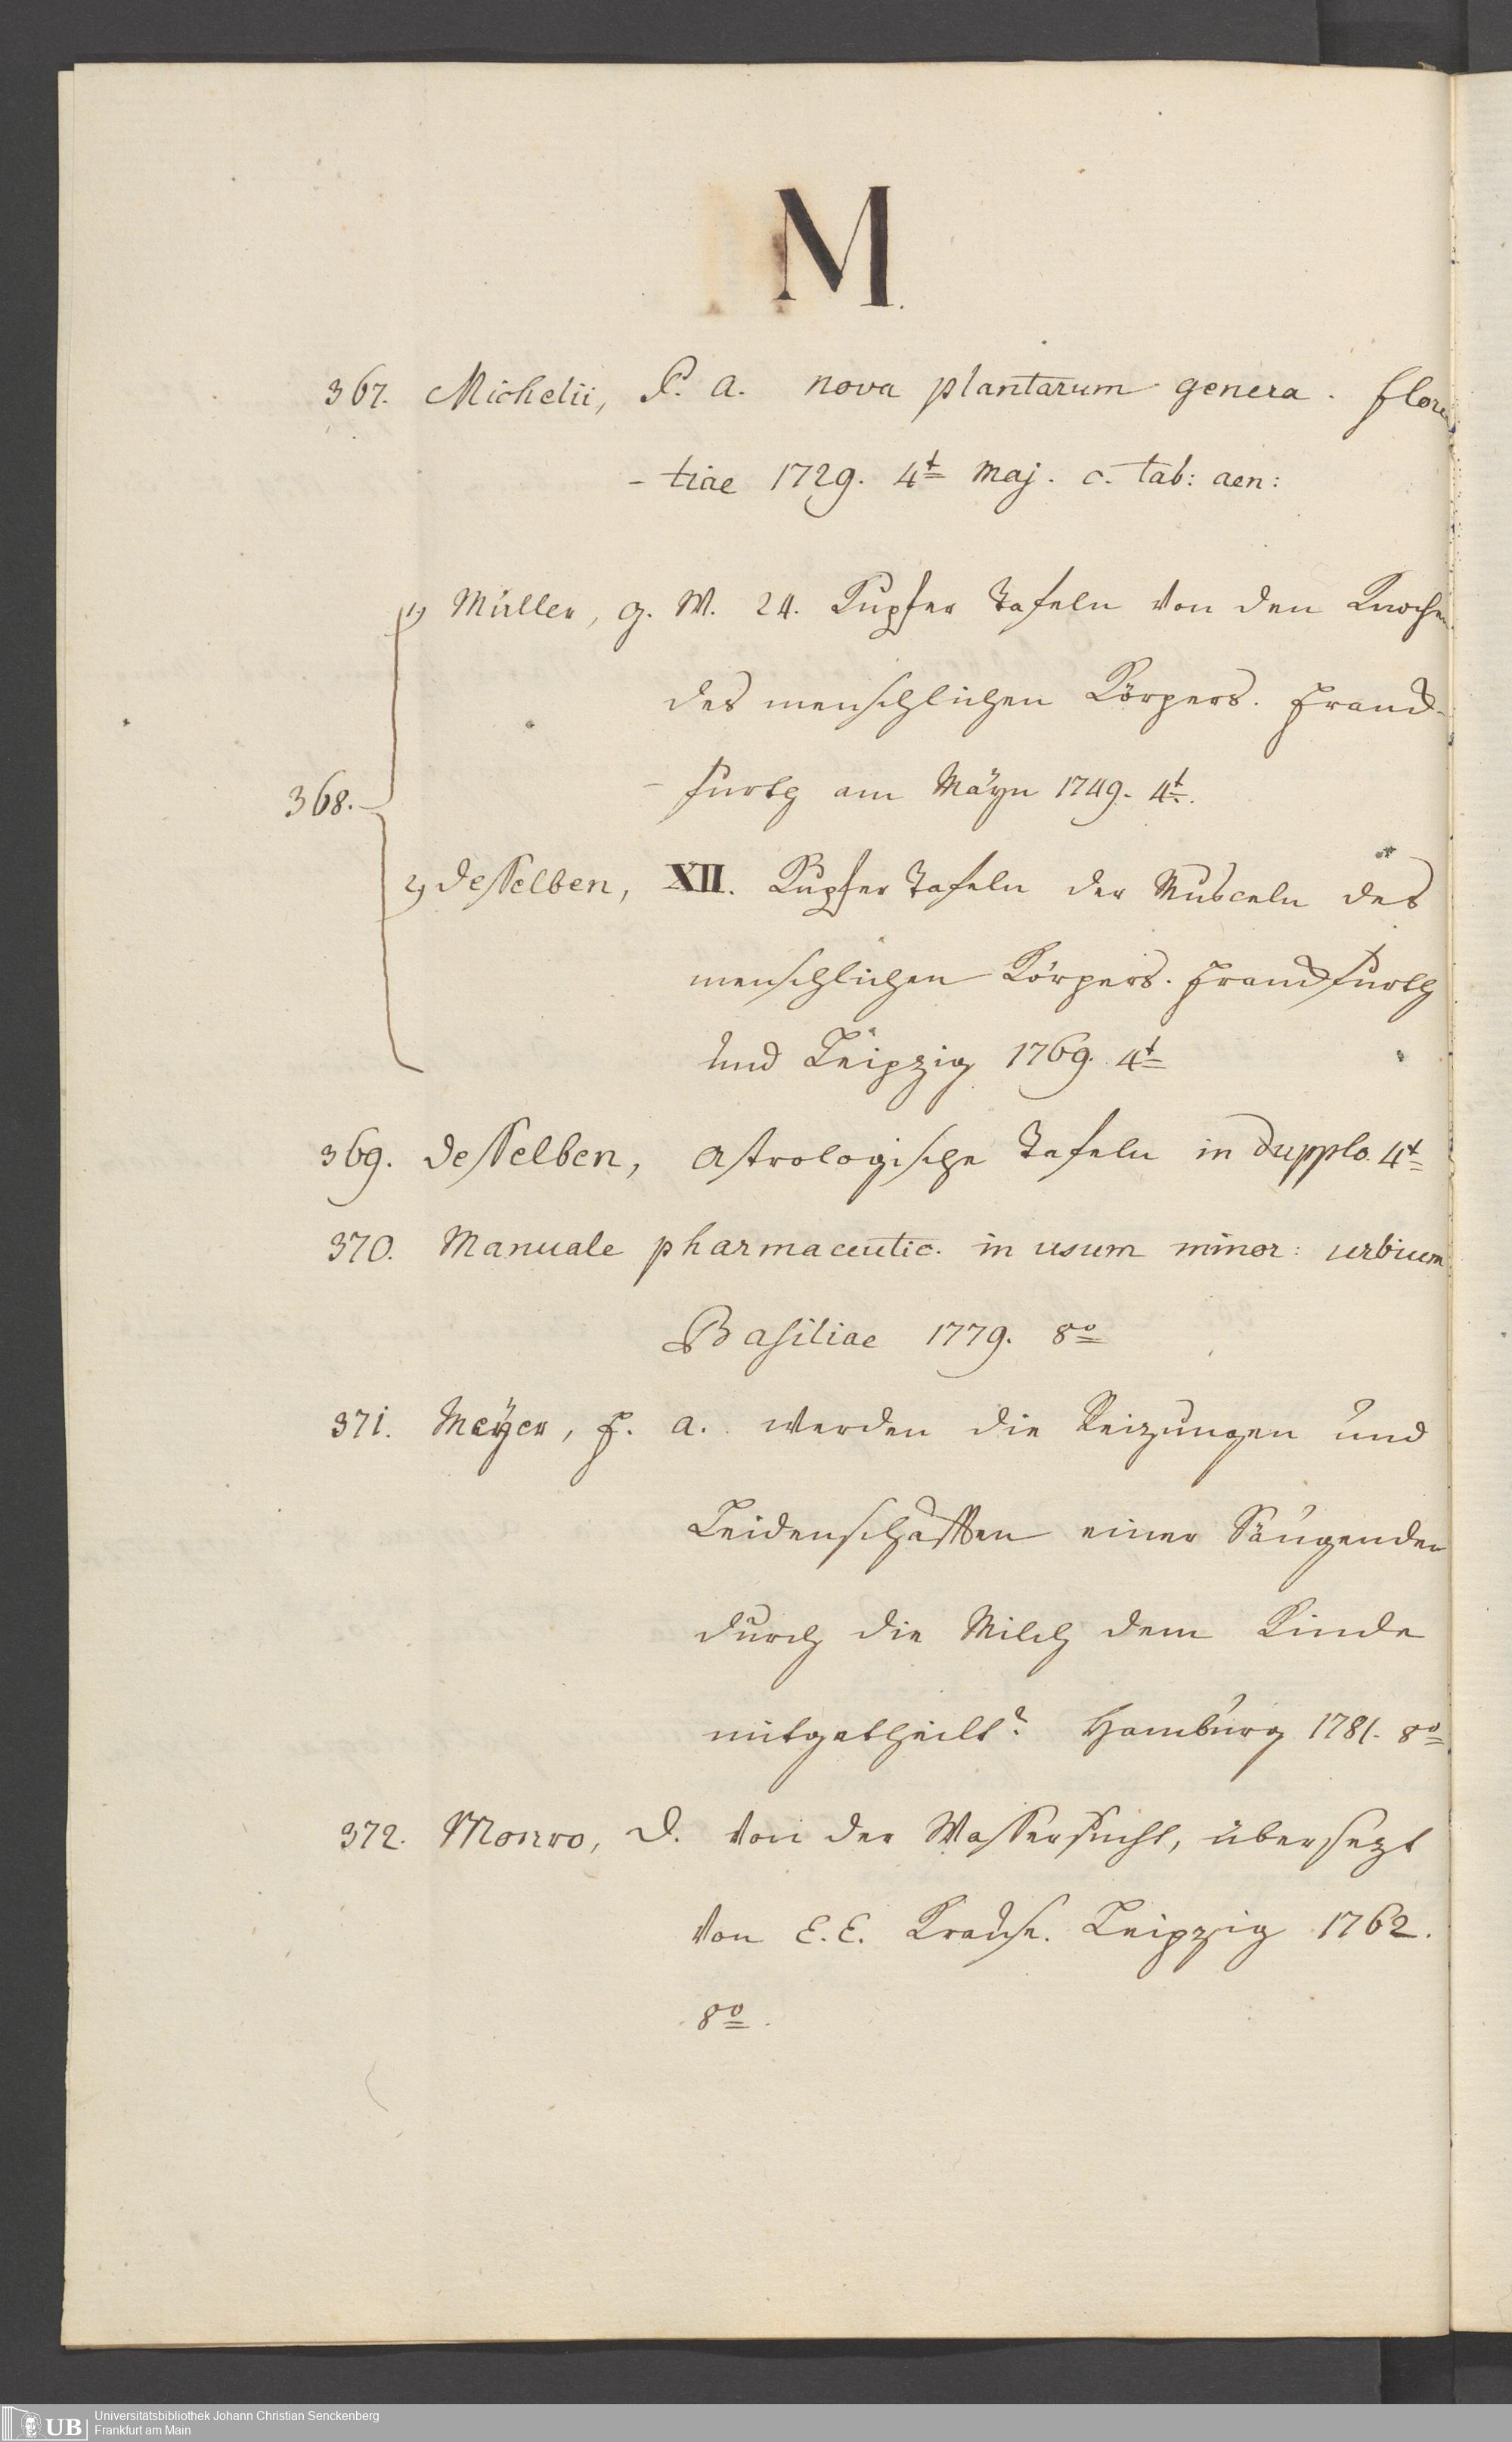 M.
367. Michelii, P. A. nova plantarum genera. Floren
- tiae 1729. 4t maj. c. tab: aen:
1) Müller, G. W. 24. Kupfer Tafeln von den Knochen
des menschlichen Körpers. Franck-
- furth am Mäyn 1749. 4t.
368.
2) desselben, XII. Kupfer Tafeln der Musceln des
menschlichen Körpers. Franckfurth
und Leipzig 1769. 4t
369. desselben, Astrologische Tafeln in dupplo. 4t
370. Manuale pharmaceutic. in usum minor: urbium
Basiliae 1779. 8o
371. Meÿer, F. A. werden die Reizungen und
Leidenschafften einer Säugenden
durch die Milch dem Kinde
mitgetheilt? Hamburg 1781. 8o
372. Monro, D. von der Wassersucht, übersezt
von E. E. Krause. Leipzig 1762.
8o.
UB
Universitätsbibliothek Johann Christian Senckenberg
Frankfurt am Main